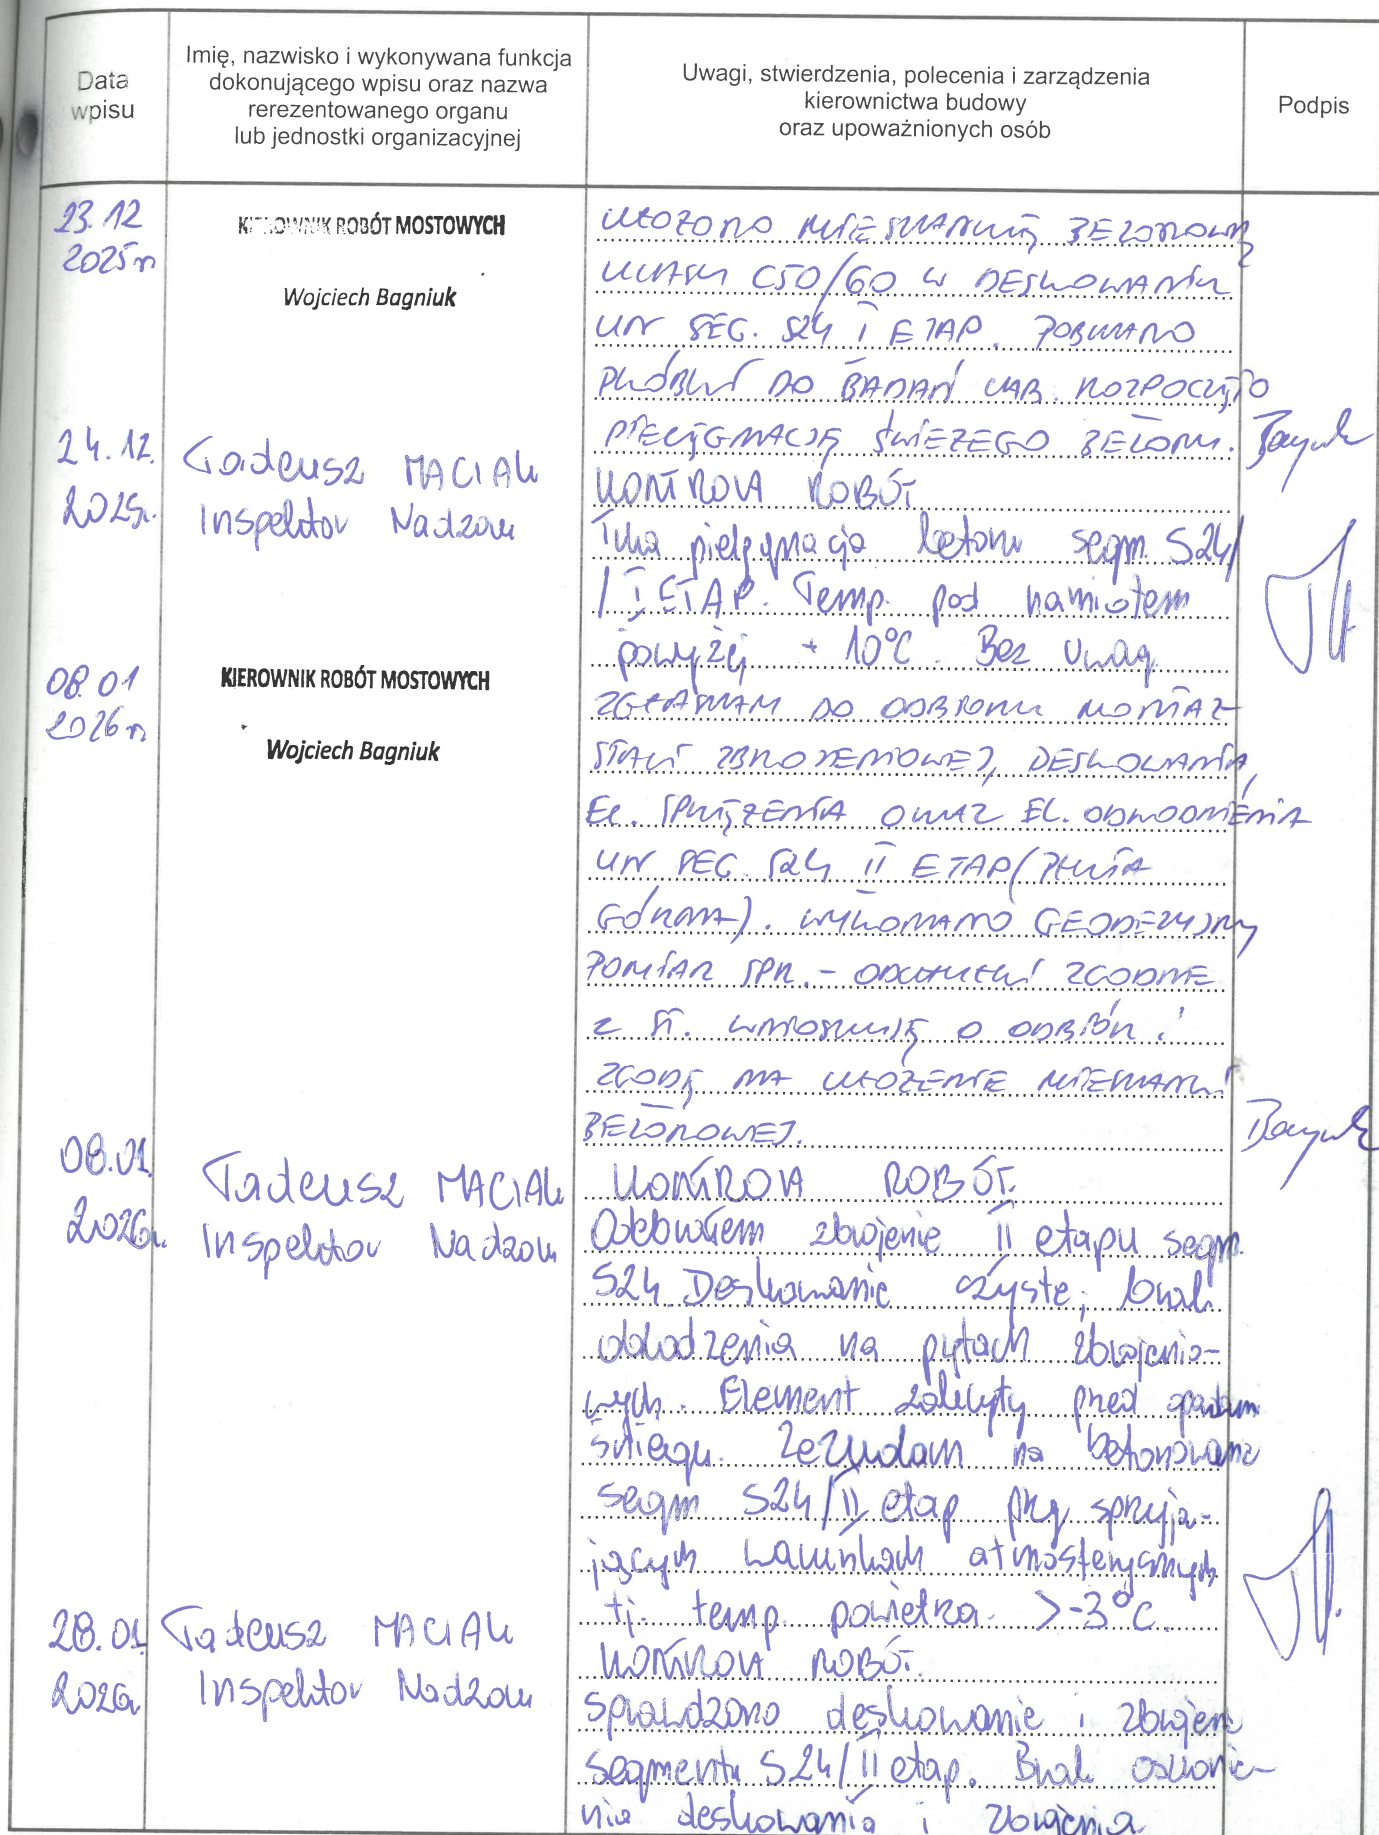 Data
wpisu
Imię, nazwisko i wykonywana funkcja
dokonującego wpisu oraz nazwa
rerezentowanego organu
lub jednostki organizacyjnej
Uwagi, stwierdzenia, polecenia i zarządzenia
kierownictwa budowy
oraz upoważnionych osób
Podpis
23.12
2025r
KIEROWNIK ROBÓT MOSTOWYCH
Wojciech Bagniuk
UŁOŻONO MIESZANKĘ BETONOWĄ
KLASY C50/60 W DESKOWANIU
UN SEG. S24 I ETAP. POBRANO
PRÓBKI DO BADAŃ LAB. ROZPOCZĘTO
PIELĘGNACJĘ ŚWIEŻEGO BETONU.
24.12.
2025r.
Tadeusz MACIAK
Inspektor Nadzoru
KONTROLA ROBÓT
Trwa pielęgnacja betonu segm. S24/
/ I ETAP. Temp. pod namiotem
powyżej + 10°C. Bez uwag.
08.01
2026r
KIEROWNIK ROBÓT MOSTOWYCH
Wojciech Bagniuk
ZGŁASZAM DO ODBIORU MONTAŻ
STALI ZBROJENIOWEJ, DESKOWANIA,
EL. SPRĘŻENIA ORAZ EL. ODWODNIENIA
UN SEG. S24 II ETAP (PŁYTA
GÓRNA). WYKONANO GEODEZYJNY
POMIAR SPR. - ODCHYŁKI ZGODNE
Z ST. WNIOSKUJĘ O ODBIÓR I
ZGODĘ NA UŁOŻENIE MIESZANKI
BETONOWEJ.
08.01.
2026r.
Tadeusz MACIAK
Inspektor Nadzoru
KONTROLA ROBÓT.
Odebrałem zbrojenie II etapu segm.
S24. Deskowanie czyste, brak
oblodzenia na prętach zbrojenio-
wych. Element zakryty przed opadami
śniegu. Zezwalam na betonowanie
segm S24/II etap przy sprzyja-
jących warunkach atmosferycznych
tj. temp. powietrza > -3°C.
28.01
2026r.
Tadeusz MACIAK
Inspektor Nadzoru
KONTROLA ROBÓT.
Sprawdzono deskowanie i zbrojenie
segmentu S24/II etap. Brak oszronie-
nia deskowania i zbrojenia